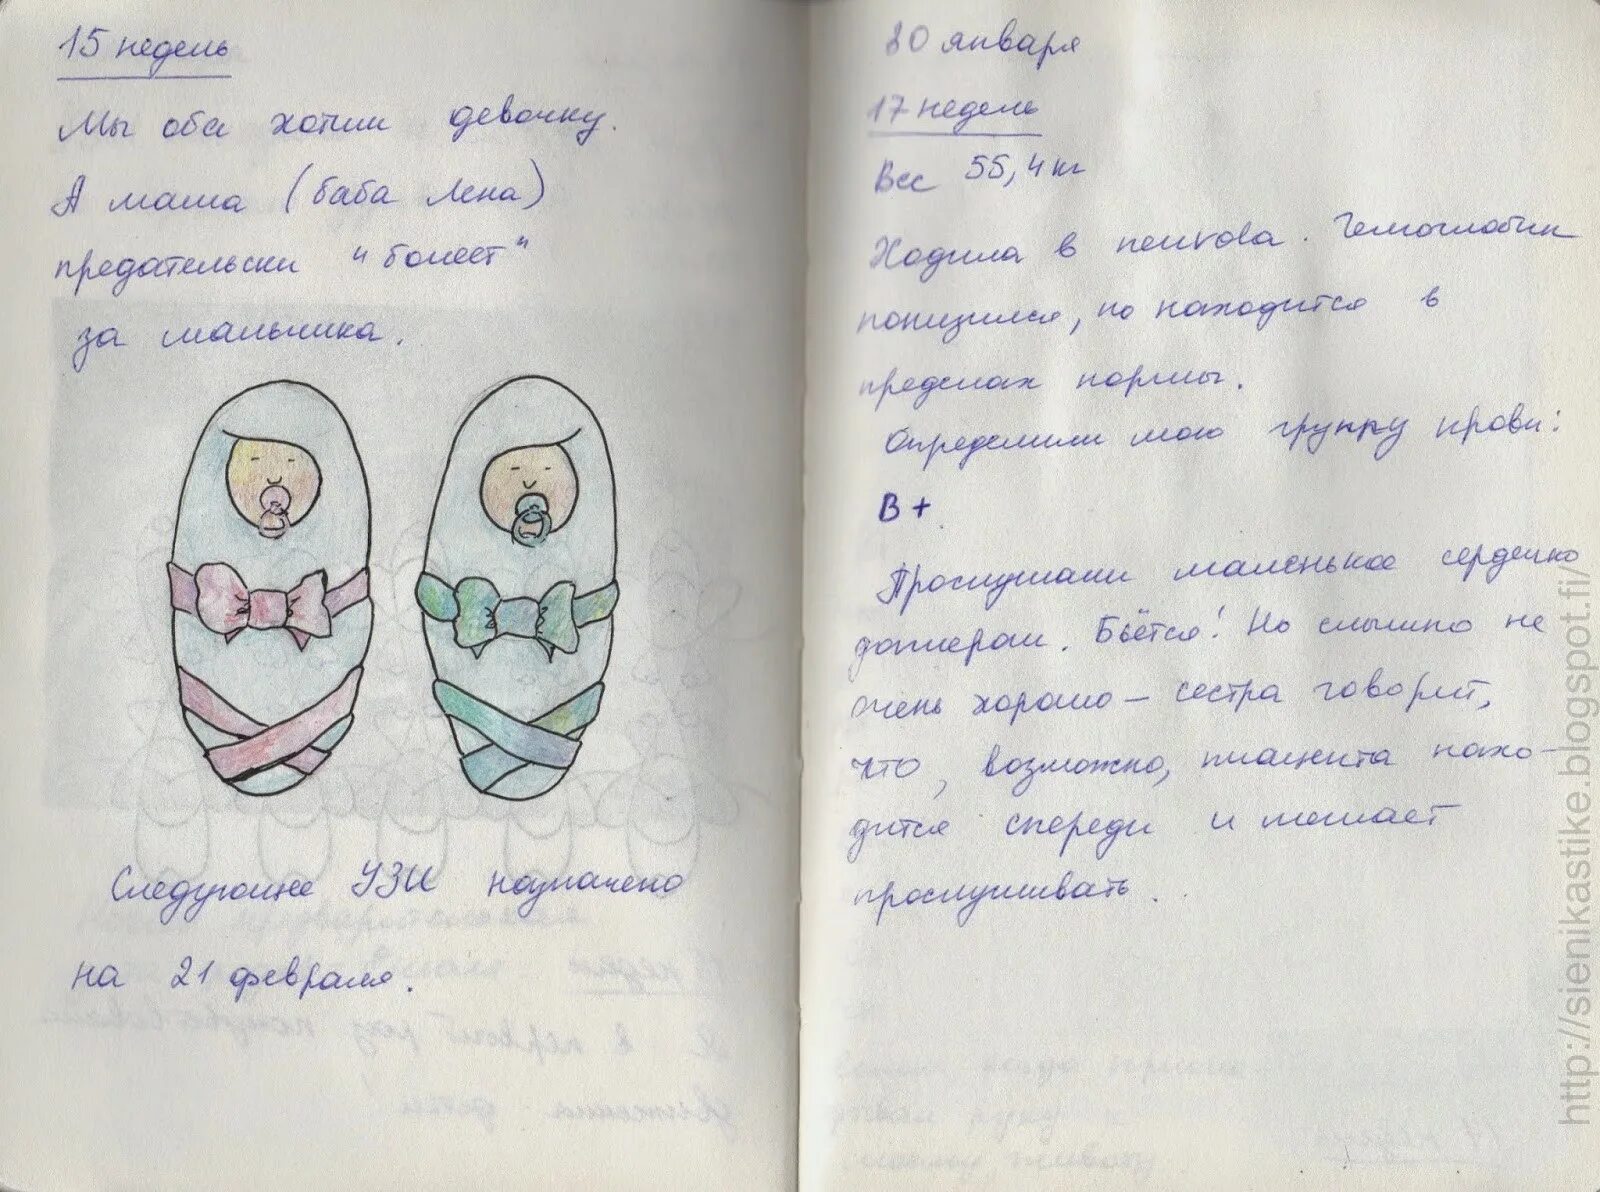 15 недель
Мы оба хотим девочку.
А мама (баба Лена)
предательски "болеет"
за мальчика.
Следующее УЗИ назначено
на 21 февраля.
30 января
17 недель
Вес 55,4 кг
Ходила в neuvola. Гемоглобин
понизился, но находится в
пределах нормы.
Определили мою группу крови:
B+
Прослушали маленькое сердечко
доплером. Бьётся! Но слышно не
очень хорошо – сестра говорит,
что, возможно, плацента нахо-
дится спереди и мешает
прослушивать.
http://sienikastike.blogspot.fi/